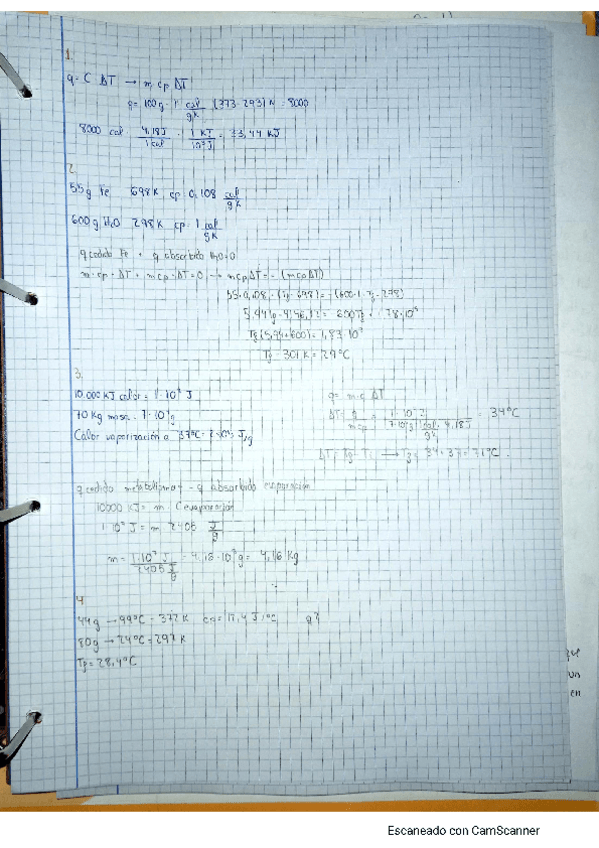 1.
q = C ΔT → m cp ΔT
q = 100g · 1 cal/gK (373-293)K = 8000
8000 cal · 4,18J/1cal · 1 KJ/10³J = 33,44 KJ
2.
55g Fe 698K cp 0,108 cal/gK
600g H₂O 298K cp 1 cal/gK
q cedido Fe + q absorbido H₂O=0
m·cp·ΔT + m cp·ΔT=0 → m cp ΔT = -(m cp ΔT)
55·0,108·(Tf-698) = -(600·1·Tf-298)
Tf (5,94+600) = 1,83·10⁵
Tf = 301 K = 29°C
3.
10.000 KJ calor = 1·10⁷ J
70 Kg masa = 7·10⁴g
Calor vaporización a 37°C =
q = m·c ΔT
ΔT = q/m cp = 1·10⁷J / 7·10⁴g · 1cal/gK · 4,18J = 34°C
ΔT = Tf - Ti → Tf = 34+37=71°C.
q cedido metabolismo = q absorbido evaporación
10000 KJ = m · C evaporación
1·10⁷ J = m 2405 J/g
m = 1·10⁷ J / 2405 J/g = 4,16 Kg
4
44g → 99°C = 372K
80g → 24°C = 297K
Tf = 28,4°C
un
en
Escaneado con CamScanner